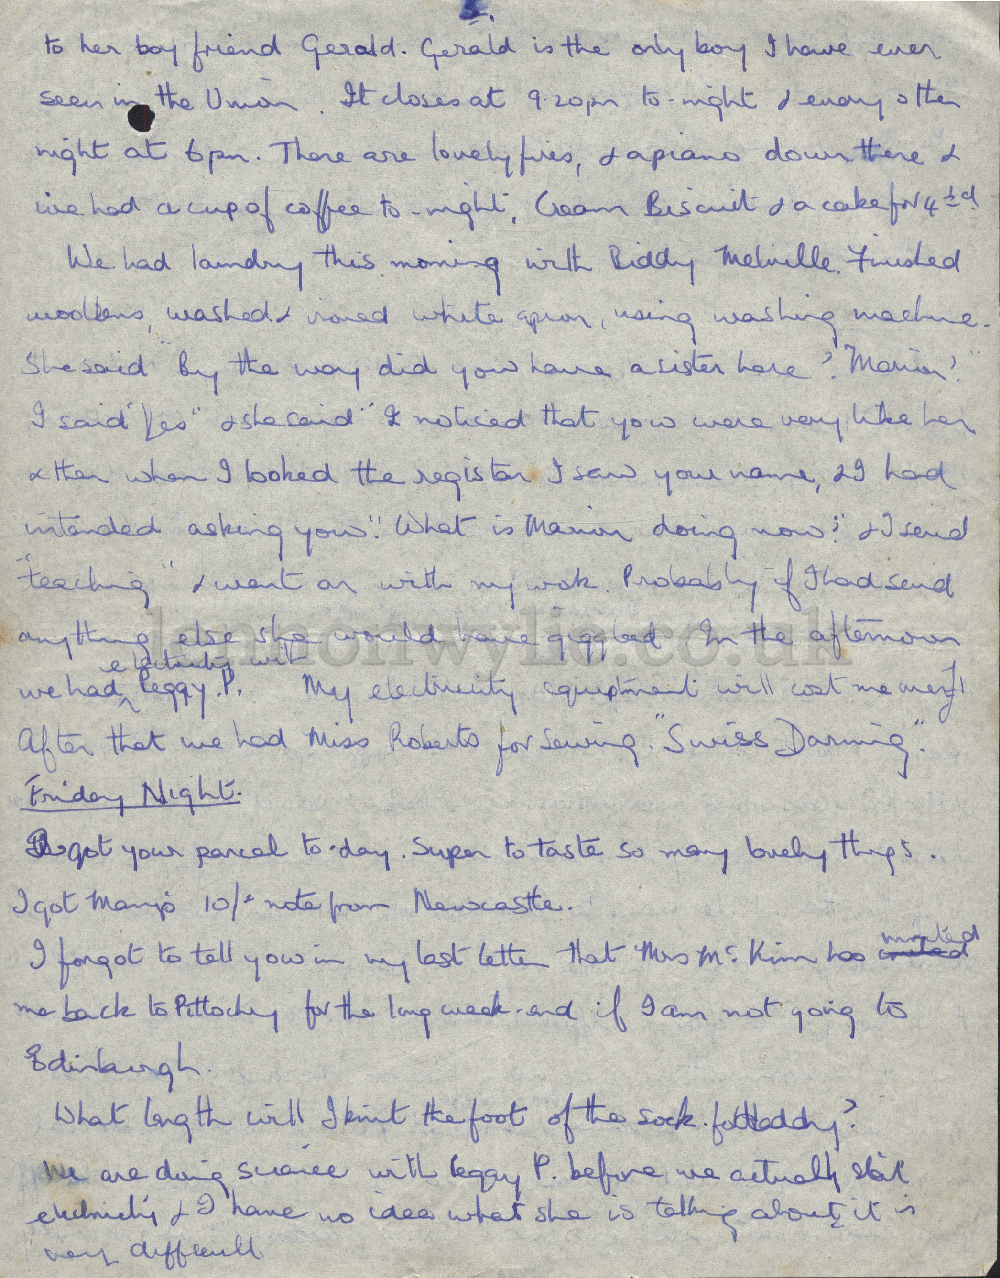 2.
to her boy friend Gerald. Gerald is the only boy I have ever
seen in the Union. It closes at 9.20pm to-night & every other
night at 6pm. There are lovely fires, & a piano down there &
we had a cup of coffee to-night, Cream Biscuit & a cake for 4½d.
We had laundry this morning with Biddy Melville. Finished
woollens, washed & ironed white apron, using washing machine.
She said "By the way did you have a sister here? "Marion?"
I said "Yes" & she said "I noticed that you were very like her
& then when I looked the register I saw your name, & I had
intended asking you". "What is Marion doing now?" & I said
"teaching" & went on with my work. Probably if I had said
anything else she would have giggled. In the afternoon
electricity with
we had Peggy P. My electricity equiptment will cost me
After that we had Miss Roberts for sewing. "Swiss Darning".
Friday Night.
I got your parcel to-day. Super to taste so many lovely things.
I got 10/- note from Newcastle.
I forgot to tell you in my last letter that Mrs McKim has invited
me back to Pitlochry for the long week-end if I am not going to
Edinburgh.
What length will I knit the foot of the sock for Daddy?
We are doing science with Peggy P. before we actually start
electricity & I have no idea what she is talking about, it is
very difficult.
lennonwylie.co.uk